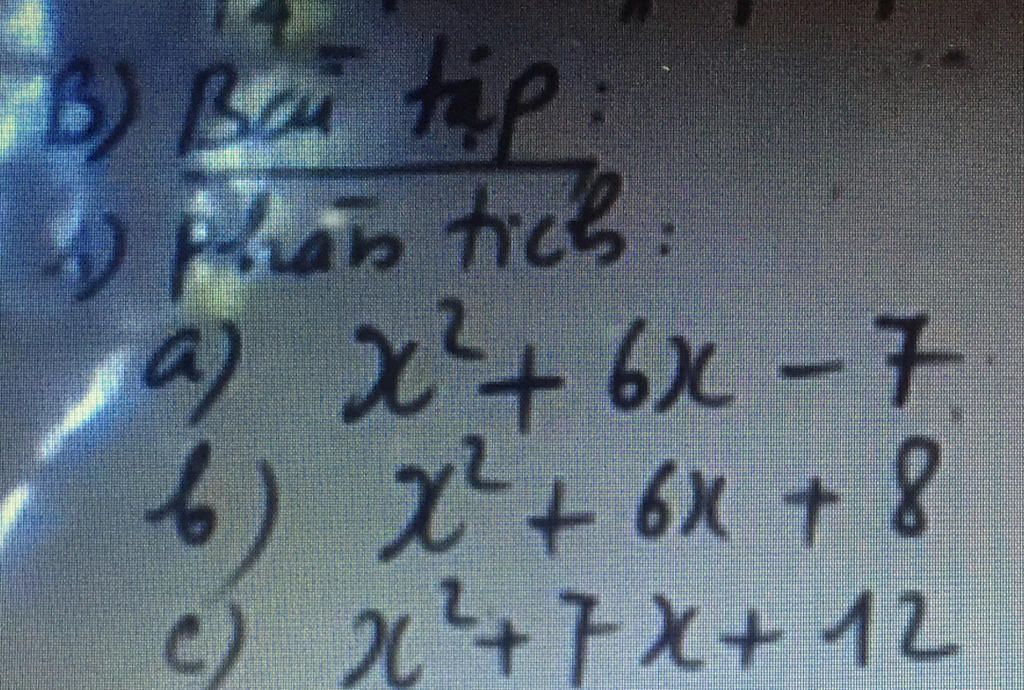 B) Bài tập:
1) Phân tích:
a) x² + 6x - 7
b) x² + 6x + 8
c) x² + 7x + 12